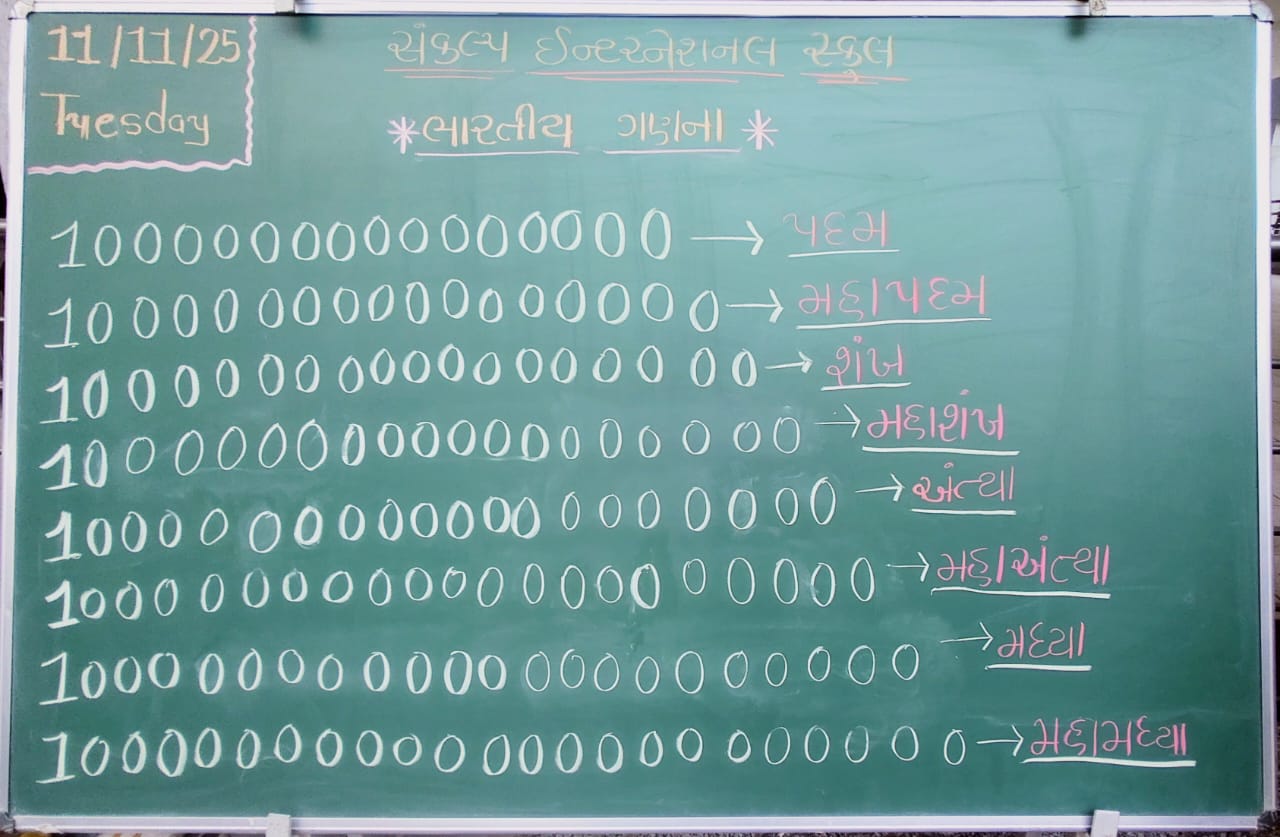 11/11/25
Tuesday
સંકલ્પ ઈન્ટરનેશનલ સ્કુલ
*ભારતીય ગણના*
1000000000000000 → પદમ
10000000000000000 → મહાપદમ
100000000000000000 → શંખ
1000000000000000000 → મહાશંખ
10000000000000000000 → અંત્યા
100000000000000000000 → મહાઅંત્યા
1000000000000000000000 → મધ્યા
10000000000000000000000 → મહામધ્યા